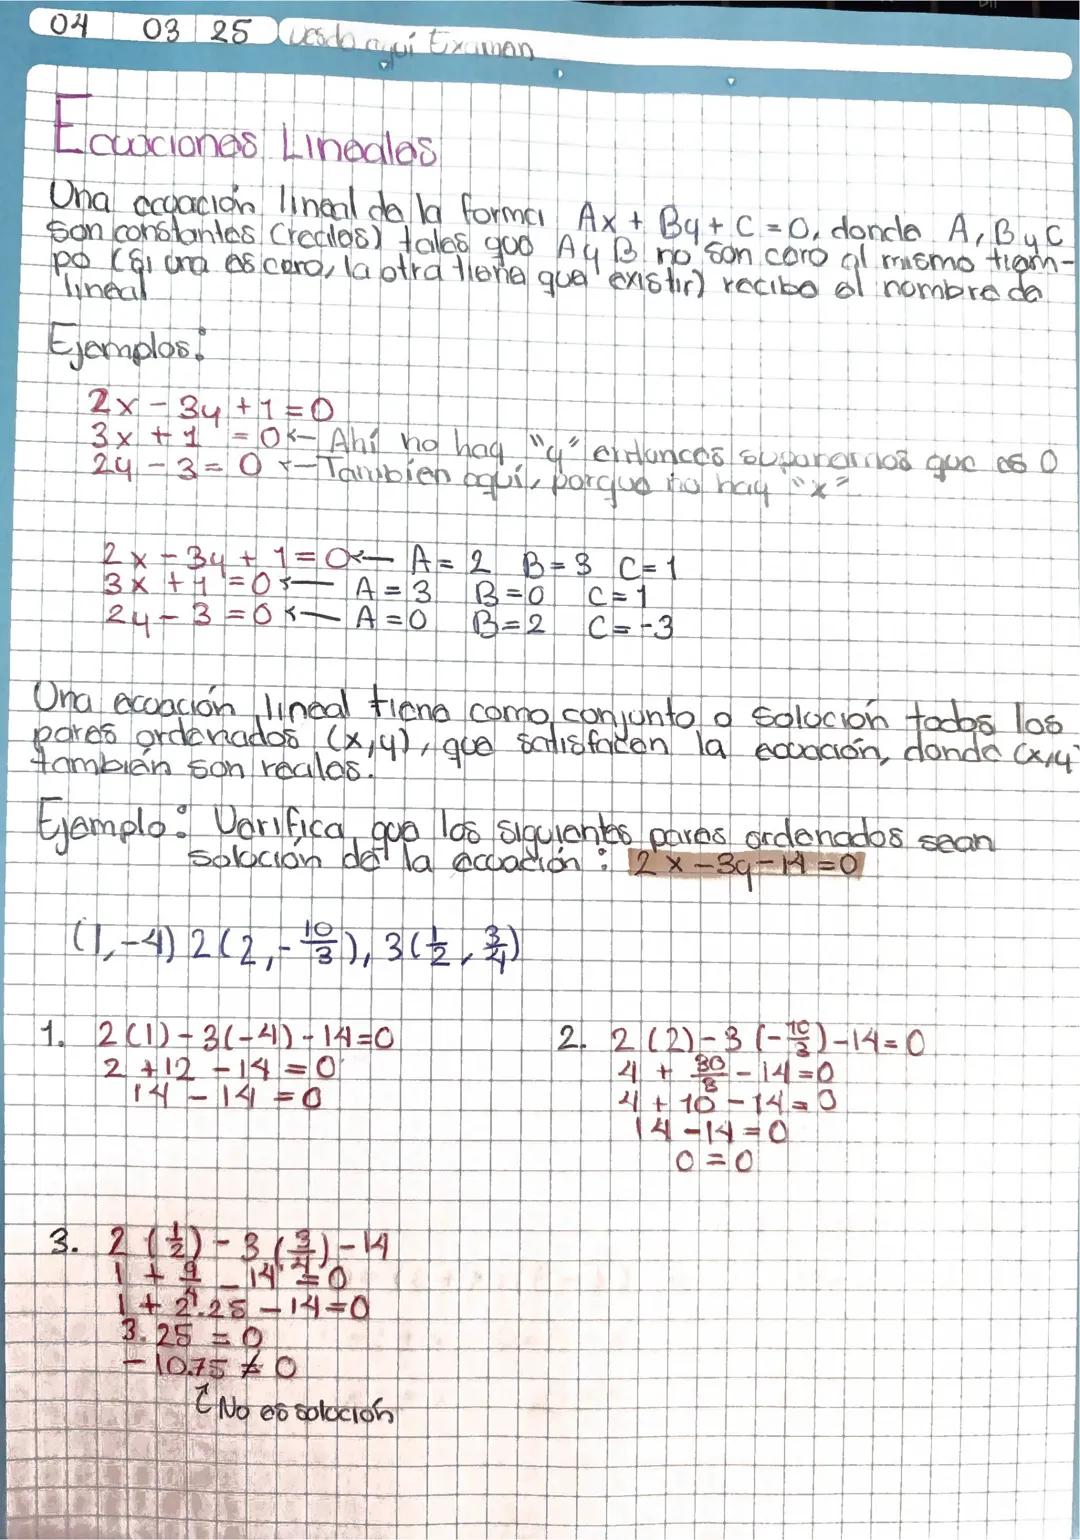 04 03 25 Desde aquí Examen
Ecuaciones Lineales
Una ecuación lineal de la forma Ax + By + C = 0, donde A, B y C
son constantes (reales) tales que A y B no son cero al mismo tiem-
po (si una es cero, la otra tiene que existir) recibe el nombre de
lineal
Ejemplos:
2x - 3y + 1 = 0
3x + 1 = 0 ← Ahí no hay "y" entonces suponemos que es 0
2y - 3 = 0 ← Tambien aquí, porque no hay "x"
2x - 3y + 1 = 0 ← A = 2 B = 3 C = 1
3x + 1 = 0 ← A = 3 B = 0 C = 1
2y - 3 = 0 ← A = 0 B = 2 C = -3
Una ecuación lineal tiene como conjunto o solución todos los
pares ordenados (x,y), que satisfacen la ecuación, donde (x,y
también son reales.
Ejemplo: Verifica que los siguientes pares ordenados sean
solución de la ecuación: 2x - 3y - 14 = 0
(1,-4) 2(2,-10/3), 3(1/2, 3/4)
1. 2(1) - 3(-4) - 14 = 0
2 + 12 - 14 = 0
14 - 14 = 0
2. 2(2) - 3(-10/3) - 14 = 0
4 + 30/3 - 14 = 0
4 + 10 - 14 = 0
14 - 14 = 0
0 = 0
3. 2(1/2) - 3(3/4) - 14
1 + 9/4 - 14 = 0
1 + 2.25 - 14 = 0
3.25 = 0
-10.75 ≠ 0
↑ No es solución